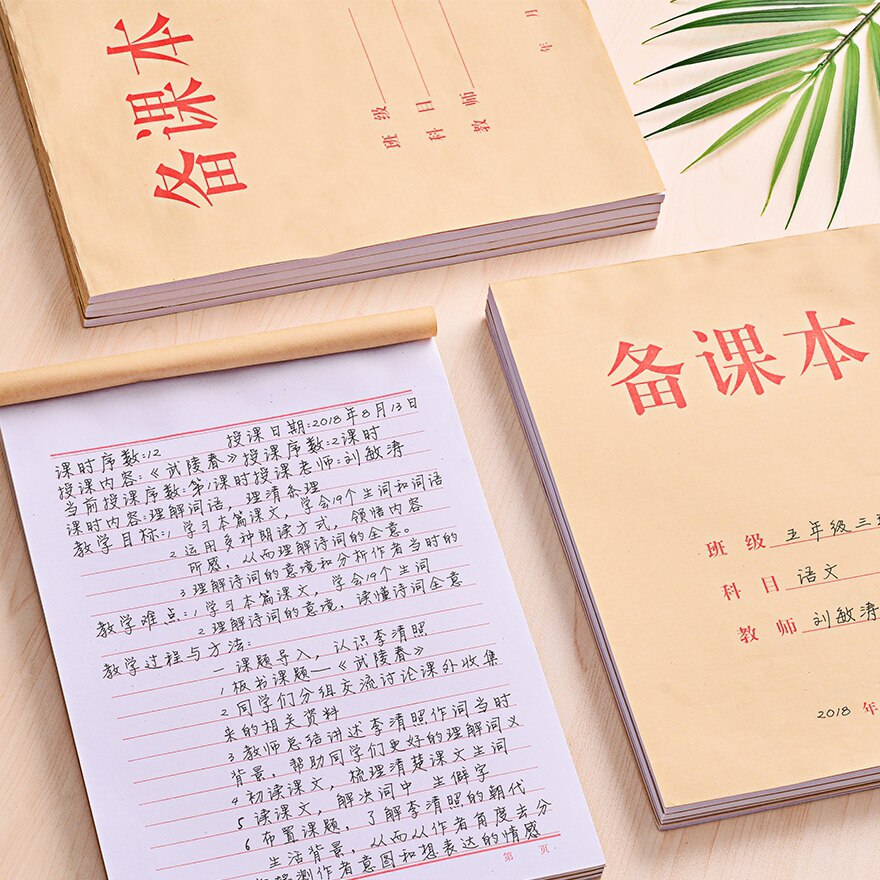 备课本
班级
科目
教师
年 月
授课日期:2018年8月13日
课时序数:12
授课内容:《武陵春》授课序数:2课时
当前授课序数:第1课时授课老师:刘敏涛
课时内容:理解词语,理清条理
教学目标:1 学习本篇课文,学会19个生词和词语
2 运用多种朗读方式,领悟内容
所感,从而理解诗词的全意。
3 理解诗词的意境和分析作者当时的
教学难点:1 学习本篇课文,学会19个生词
2 理解诗词的意境,读懂诗词全意
教学过程与方法:
一 课题导入,认识李清照
1 板书课题—《武陵春》
2 同学们分组交流讨论课外收集
来的相关资料
3 教师总结讲述李清照作词当时
背景,帮助同学们更好的理解词义
4 初读课文,梳理清楚课文生词
5 读课文,解决词中 生僻字
6 布置课题,了解李清照的朝代
生活背景,从而从作者角度去分
测作者意图和想表达的情感
第 页
备课本
班级 五年级三
科目 语文
教师 刘敏涛
2018 年